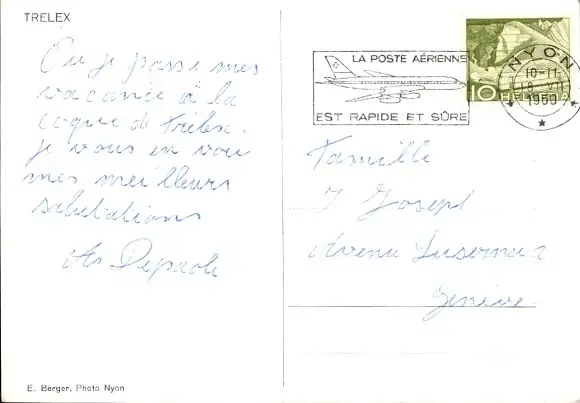 TRELEX
Ou je passe mes
vacance à la
coque de Trelex.
je vous en voi
mes meilleurs
salutations
LA POSTE AÉRIENNE
EST RAPIDE ET SÛRE
NYON
10-11
VII
1960
10 HELVETIA
Famille
J Joseph
Avenu
Genève
E. Berger, Photo Nyon